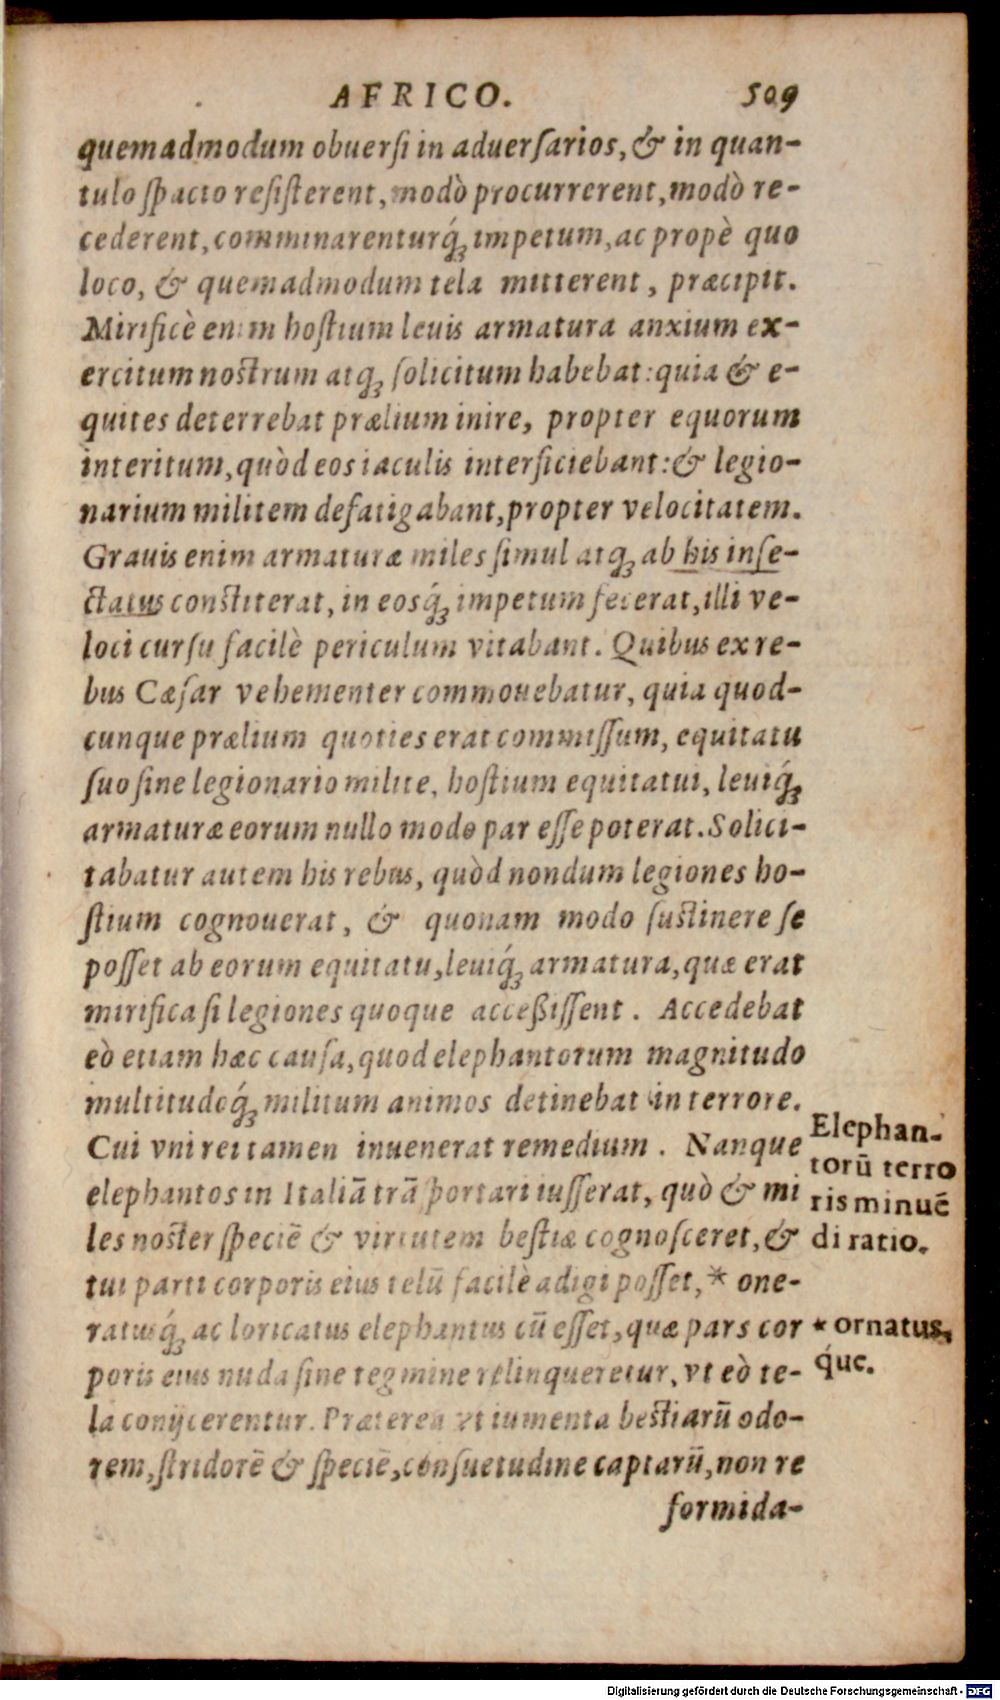 AFRICO. 509
quemadmodum obuersi in aduersarios, & in quan-
tulo spacio resisterent, modò procurrerent, modò re-
cederent, comminarenturq́; impetum, ac propè quo
loco, & quemadmodum tela mitterent, præcipit.
Mirificè enim hostium leuis armatura anxium ex-
ercitum nostrum atq; solicitum habebat: quia & e-
quites deterrebat prælium inire, propter equorum
interitum, quòd eos iaculis interficiebant: & legio-
narium militem defatigabant, propter velocitatem.
Grauis enim armaturæ miles simul atq; ab his inse-
ctatus constiterat, in eosq́; impetum fecerat, illi ve-
loci cursu facilè periculum vitabant. Quibus ex re-
bus Cæsar vehementer commouebatur, quia quod-
cunque prælium quoties erat commissum, equitatu
suo sine legionario milite, hostium equitatui, leuiq́;
armaturæ eorum nullo modo par esse poterat. Solici-
tabatur autem his rebus, quòd nondum legiones ho-
stium cognouerat, & quonam modo sustinere se
posset ab eorum equitatu, leuiq́; armatura, quæ erat
mirifica si legiones quoque acceßissent. Accedebat
eò etiam hæc causa, quod elephantorum magnitudo
multitudoq́; militum animos detinebat in terrore.
Cui vni rei tamen inuenerat remedium. Nanque
elephantos in Italiā trāsportari iusserat, quò & mi
les noster speciē & virtutem bestiæ cognosceret, &
cui parti corporis eius telū facilè adigi posset, * one-
ratusq́; ac loricatus elephantus cū esset, quæ pars cor
poris eius nuda sine tegmine relinqueretur, vt eò te-
la conijcerentur. Præterea vt iumenta bestiarū odo-
rem, stridorē & speciē, consuetudine captarū, non re
formida-
Elephan-
torū terro
ris minuē
di ratio.
* ornatus,
q́ue.
Digitalisierung gefördert durch die Deutsche Forschungsgemeinschaft - DFG